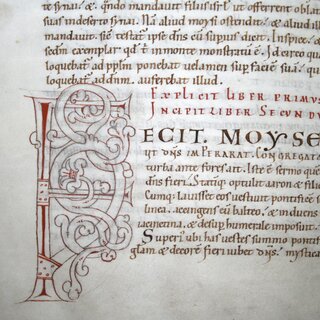 quando mandauit filiis isrl ut offerrent oblat
suas indeserto synai. moysi ostendit & aliud
mandauit. ipse dns dixit. Inspice &
exemplar qd inmonte
loquebat ad pplm ponebat uelamen sup facie sua. qu
loquebat ad dnm. auferebat illud.
EXPLICIT LIBER PRIMUS
INCIPIT LIBER SECUNDU
FECIT. MOYSE
UT DNS IMPERARAT. CONGREGATA
turba ante fores ait. Iste e sermo que
dns fieri. Statiq optulit aaron & filio
Cumq; lauisset eos uestiuit pontifice
linea. accingens eu balteo. & induens
iacinctina. & desup humerale imposuit.
Superi ubi has uestes summo pontifi
glam & decore fieri iubet dns. mystica